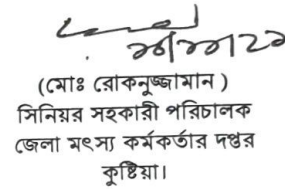 (মোঃ রোকনুজ্জামান )
সিনিয়র সহকারী পরিচালক
জেলা মৎস্য কর্মকর্তার দপ্তর
কুষ্টিয়া।